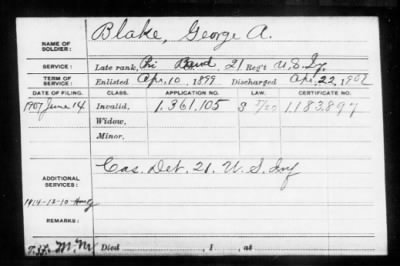 NAME OF SOLDIER: Blake, George A.
SERVICE: Late rank, Band 21 Reg't U.S. Inf
TERM OF SERVICE: Enlisted Apr. 10, 1899 Discharged Apr. 22, 1902
DATE OF FILING. CLASS. APPLICATION NO. LAW. CERTIFICATE NO.
1907 June 14 Invalid, 1.361.105 1.183.897
Widow,
Minor,
ADDITIONAL SERVICES: Cas. Det. 21. U.S. Inf
1914-12-10
REMARKS:
Died , 1 , at